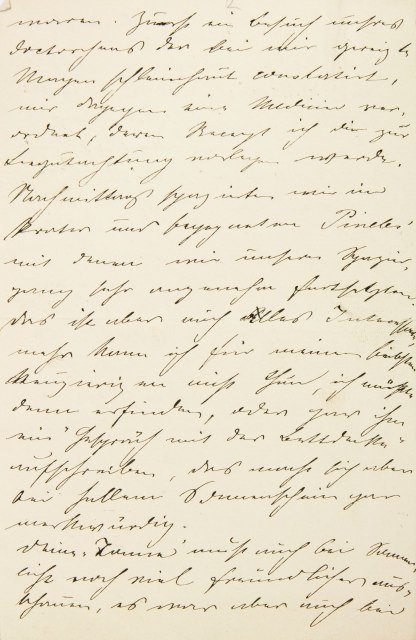 waren. Zuerst ein Besuch unseres
Doctors, der bei mir gereizte
Magenschleimhaut constatirt,
mir dagegen eine Medicin ver-
ordnet, deren Recept ich dir zur
Begutachtung vorlegen werde.
Nachmittags spazirten wir im
Prater und begegneten Pineles'
mit denen wir unseren Spazier-
gang sehr angenehm fortsetzten
das ist aber auch Alles Interessante
mehr kann ich für meinen liebsten
Neugierigen nicht thun, ich müsste
denn erfinden, oder gar ihm
ein "Gespräch mit der Bettdecke"
aufschreiben, das macht sich aber
bei hellem Sonnenschein gar
merkwürdig.
Deine muß auch bei Sonnen-
licht noch viel freundlicher aus-
schauen, es war aber auch bei